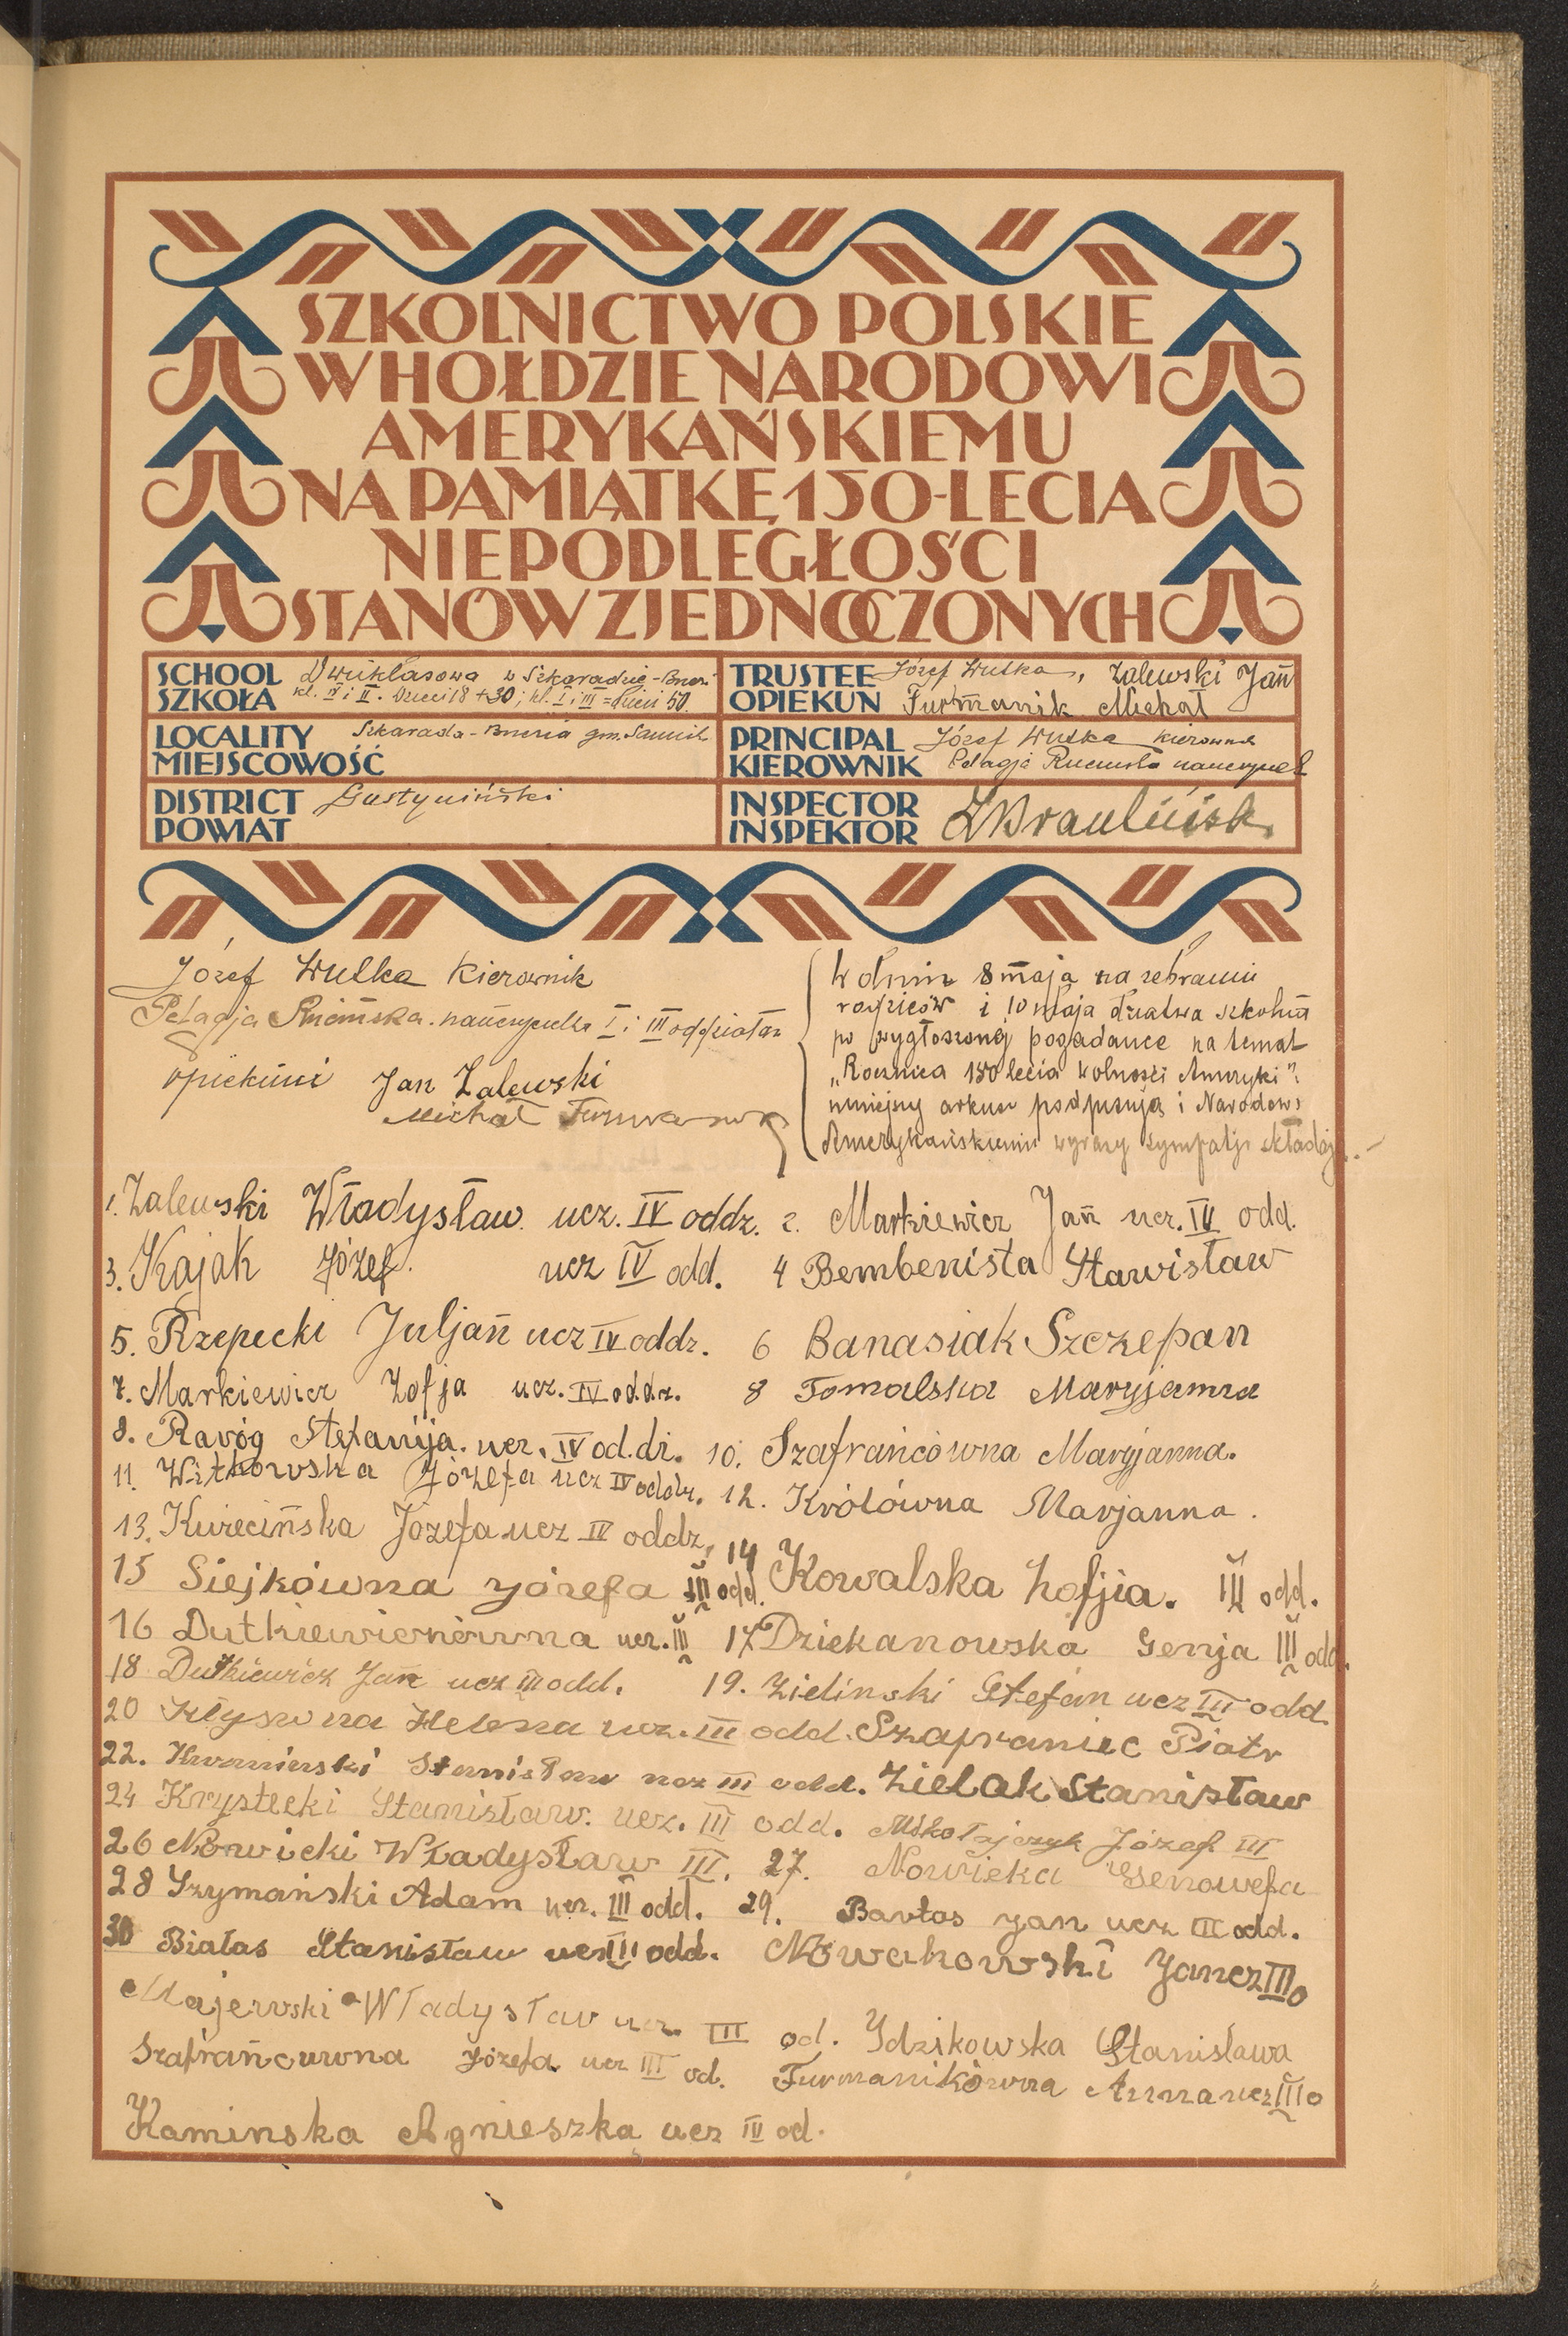 SZKOLNICTWO POLSKIE
W HOŁDZIE NARODOWI
AMERYKAŃSKIEMU
NA PAMIĄTKĘ 150-LECIA
NIEPODLEGŁOŚCI
STANÓW ZJEDNOCZONYCH
SCHOOL SZKOŁA
Dwuklasowa w Szkaradzie-
kl. IV i II. Dzieci 18 + 30; kl. I i III = dzieci 50.
TRUSTEE OPIEKUN
Józef Wulka, Zalewski Jan
Furmanik Michał
LOCALITY MIEJSCOWOŚĆ
Szkarada - gm. Sanniki
PRINCIPAL KIEROWNIK
Józef Wulka kierownik
Pelagja
DISTRICT POWIAT
Gustyniński
INSPECTOR INSPEKTOR
Józef Wulka Kierownik
Pelagja nauczycielka I i III oddziałar
opiekuni Jan Zalewski
Michał Furmanik
W dniu 8 maja na zebraniu
rodziców i 10 maja dziatwa szkolna
po wygłoszonej pogadance na temat
„Rocznica 150 lecia wolności Ameryki":
niniejszy arkusz podpisują i Narodowi
Amerykańskiemu wyrazy sympatji składają.
1. Zalewski Władysław. ucz. IV oddz. 2. Markiewicz Jan ucz. IV odd.
3. Kajak Józef. ucz IV odd. 4 Bembenista Stawisław
5. Rzepecki Juljan ucz IV oddz. 6 Banasiak Szczepan
7. Markiewicz Zofja ucz. IV oddz. 8 Tomalska Maryjanna
8. Raróg Stefanija. ucz. IV od.dz. 10. Szafrańcówna Maryjanna.
11. Witkowska Józefa ucz IV oddz. 12. Królówna Marjanna.
13. Józefa ucz IV oddz, 14 Kowalska Zofjia. III odd.
15 Siejkówna Józefa III odd.
16 Dutkiewiczówna ucz. III 17 Dziekanowska Genja III odd.
18 Dutkiewicz Jan ucz III odd. 19. Zieliński Stefan ucz III odd
20 Helena ucz. III odd. Szafraniec Piotr
22. Stanisław ucz III odd. Zielak Stanisław
24 Krystecki Stanisław. ucz. III odd. Mikołajczyk Józef III
26 Nowicki Władysław III. 27. Nowicka Genowefa
28 Szymański Adam ucz. III odd. 29. Bartos Jan ucz III odd.
30 Białas Stanisław ucz III odd. Nowakowski Jan cz III o
Majewski Władysław ucz III od. Idzikowska Stanisława
Szafrańcuwna Józefa ucz III od. Furmanikówna Anna ucz III o
Kaminska Agnieszka ucz IV od.